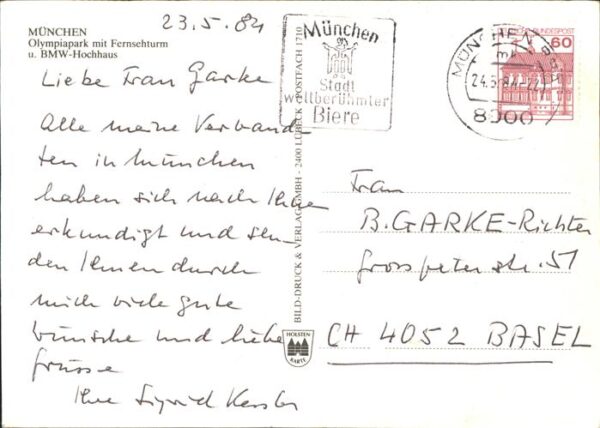 23.5.84
MÜNCHEN
Olympiapark mit Fernsehturm
u. BMW-Hochhaus
Liebe Frau Garke
Alle meine Verwand-
ten in München
haben sich nach Ihnen
erkundigt und sen-
den Ihnen durch
mich viele gute
Wünsche und liebe
Grüsse
Ihre Sigrid Kessler
BILD-DRUCK & VERLAG GMBH · 2400 LÜBECK · POSTFACH 1710
HOLSTEN
KARTE
München
Stadt
weltberühmter
Biere
MÜNCHEN
24.5.84
8000
BUNDESPOST
60
Frau
B. GARKE-Richter
Grosspeterstr. 51
CH 4052 BASEL